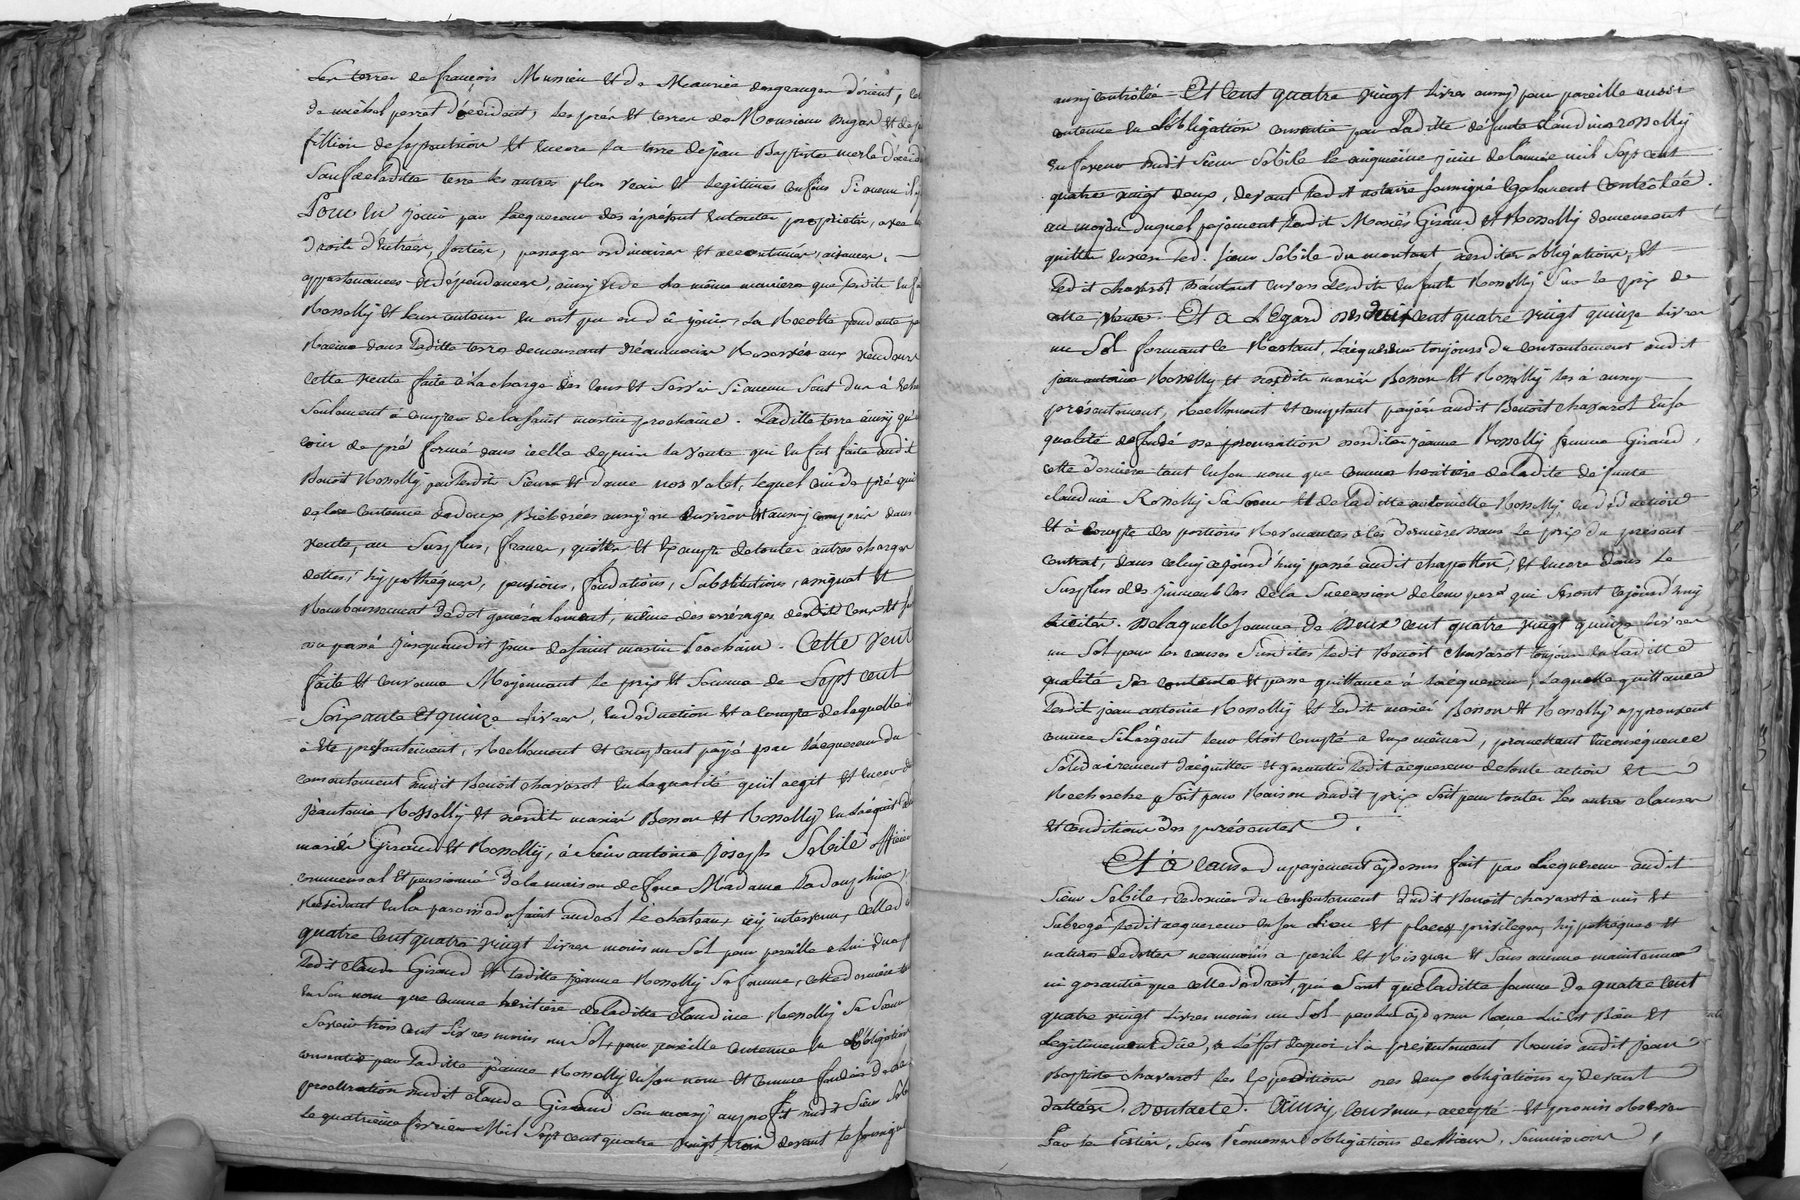 Les terres de françois Mussieu et de Maurice desgranges d'orient,
de michel perret d'occident, les prés et terres de Monsieur et de
fillion de septentrion et encore la terre de jean Baptiste merle d'occident
Sauf de laditte terre les autres plus vrais et legitimes confins Si aucun
Pour en jouir par l'acquereur des àprésent en toutes proprietés, avec
Droits d'entrées, sorties, passages ordinaires et accoutumés, aisances,
appartenances et dépendances, ainsy et de la même maniere que lesdits
Rosselly et leurs auteurs en ont pu ou dû jouir, la Recolte pendante par
Racine dans laditte terre demeurant néanmoins Reservée aux vendeurs
cette vente faitte à la charge des cens et Servis Si aucun Sont dus à échoir
Seulement à compter de la saint martin prochaine. Laditte terre ainsy qu'un
coin de pré formé dans icelle depuis la vente qui en fut faite audit
Benoit Rosselly par lesdits Sieur et dame lequel coin de pré qui
est de la contenue de deux Bicherées ou environ est aussy compris dans
vente, au Surplus, franc, quitte et Exempt de toutes autres charges
dettes, hypothéques, pensions, fondations, Substitutions, assignat et
Remboursement de dot generalement, même des arrérages desdits cens et
du passé jusqu'audit jour de saint martin prochain. Cette vente
faite et convenue Moyennant le prix et Somme de Sept cent
Soixante et quinze livres, en deduction et a compte de laquelle il
a été présentement, Reellement et comptant payé par l'acquereur du
consentement dudit Benoit chavarot en la qualité qu'il agit et encore de
jean antoine Rosselly et desdits mariés Besson et Rosselly en l'acquit des
mariés Giraud et Rosselly, à Sieur antoine Joseph Sebile officier
commensal et pensionné de la maison de feue Madame La dauphine,
Résidant en la paroisse de saint andeol le chateau, icy intervenu, celle de
quatre Cent quatre vingt livres moins un Sol pour pareille à lui due par
ledit claude Giraud et laditte jeanne Rosselly Sa femme, cette derniere tant
en Son nom que comme heritiere de laditte claudine Rosselly Sa Sœur
Savoir trois cent livres moins un Sol, pour pareille contenue en l'obligation
consentie par laditte jeanne Rosselly en son nom et comme fondée de
procuration dudit claude Giraud Son mary au profit dudit Sieur Sebile
le quatrieme fevrier Mil Sept cent quatre vingt trois devant le soussigné
aussy controlée Et Cent quatre vingt livres aussy pour pareille aussi
contenue en L'obligation consentie par Laditte défunte claudine Rosselly
en faveur dudit Sieur Sebile le cinquieme juin de l'année mil Sept cent
quatre vingt deux, devant ledit notaire soussigné Egalement Contrôlée.
au moyen duquel payement lesdits Mariés Giraud et Rosselly demeurent
quittes envers led. Sieur Sebile du montant desdites obligations, et
ledit chavarot d'autant envers lesdits Rosselly Sur le prix de
cette vente. Et a L'Egard des Deux cent quatre vingt quinze livres
un Sol formant le Restant, l'acquereur toujours du consentement dudit
jean antoine Rosselly et desdits mariés Besson et Rosselly les à aussy
présentement, Réellement et comptant payées audit Benoit chavarot en sa
qualité de fondé de procuration desdites jeanne Rosselly femme Giraud,
cette derniere tant en son nom que comme heritiere de ladite défunte
claudine Rosselly Sa sœur et de laditte antoinette Rosselly en déduction
et à compte des portions Revenantes à ces dernieres dans le prix du présent
contrat, dans celuy cejourd'huy passé audit chapotton, et encore dans le
Surplus des immeubles de la Succession de leur pere qui Seront cejourd'huy
licités. De laquelle somme de Deux cent quatre vingt quinze livres
un Sol pour les causes Susdites ledit Benoit chavarot toujours en ladite
qualité Se contente et passe quittance à l'acquereur, laquelle quittance
ledit jean antoine Rosselly et lesdits mariés Besson et Rosselly approuvent
comme Si l'argent leur étoit compté a Eux mêmes, promettant en conséquence
Solidairement d'acquitter et garantir ledit acquereur de toute action et
Recherche Soit pour Raison dudit prix Soit pour toutes les autres clauses
et conditions des présentes.
Et à Cause du payement cydessus fait par L'acquereur audit
Sieur Sebile, ce dernier du consentement dudit Benoit chavarot a mis et
Subrogé ledit acquereur en son Lieu et place, privileges, hypothéques et
natures de dettes neanmoins a perils et Risques et Sans aucune maintenue
ni garantie que celle de droit, qui est que laditte somme de quatre Cent
quatre vingt livres moins un Sol par lui cydessus Reçue lui est Bien et
legitimement due, a l'effet de quoi il a présentement Remis audit jean
Baptiste chavarot les Expeditions des deux obligations cydevant
dattées. Dont acte. Ainsy convenu, accepté et promis observer
Par les Parties, Sous Promesses obligations de Biens, Soumissions